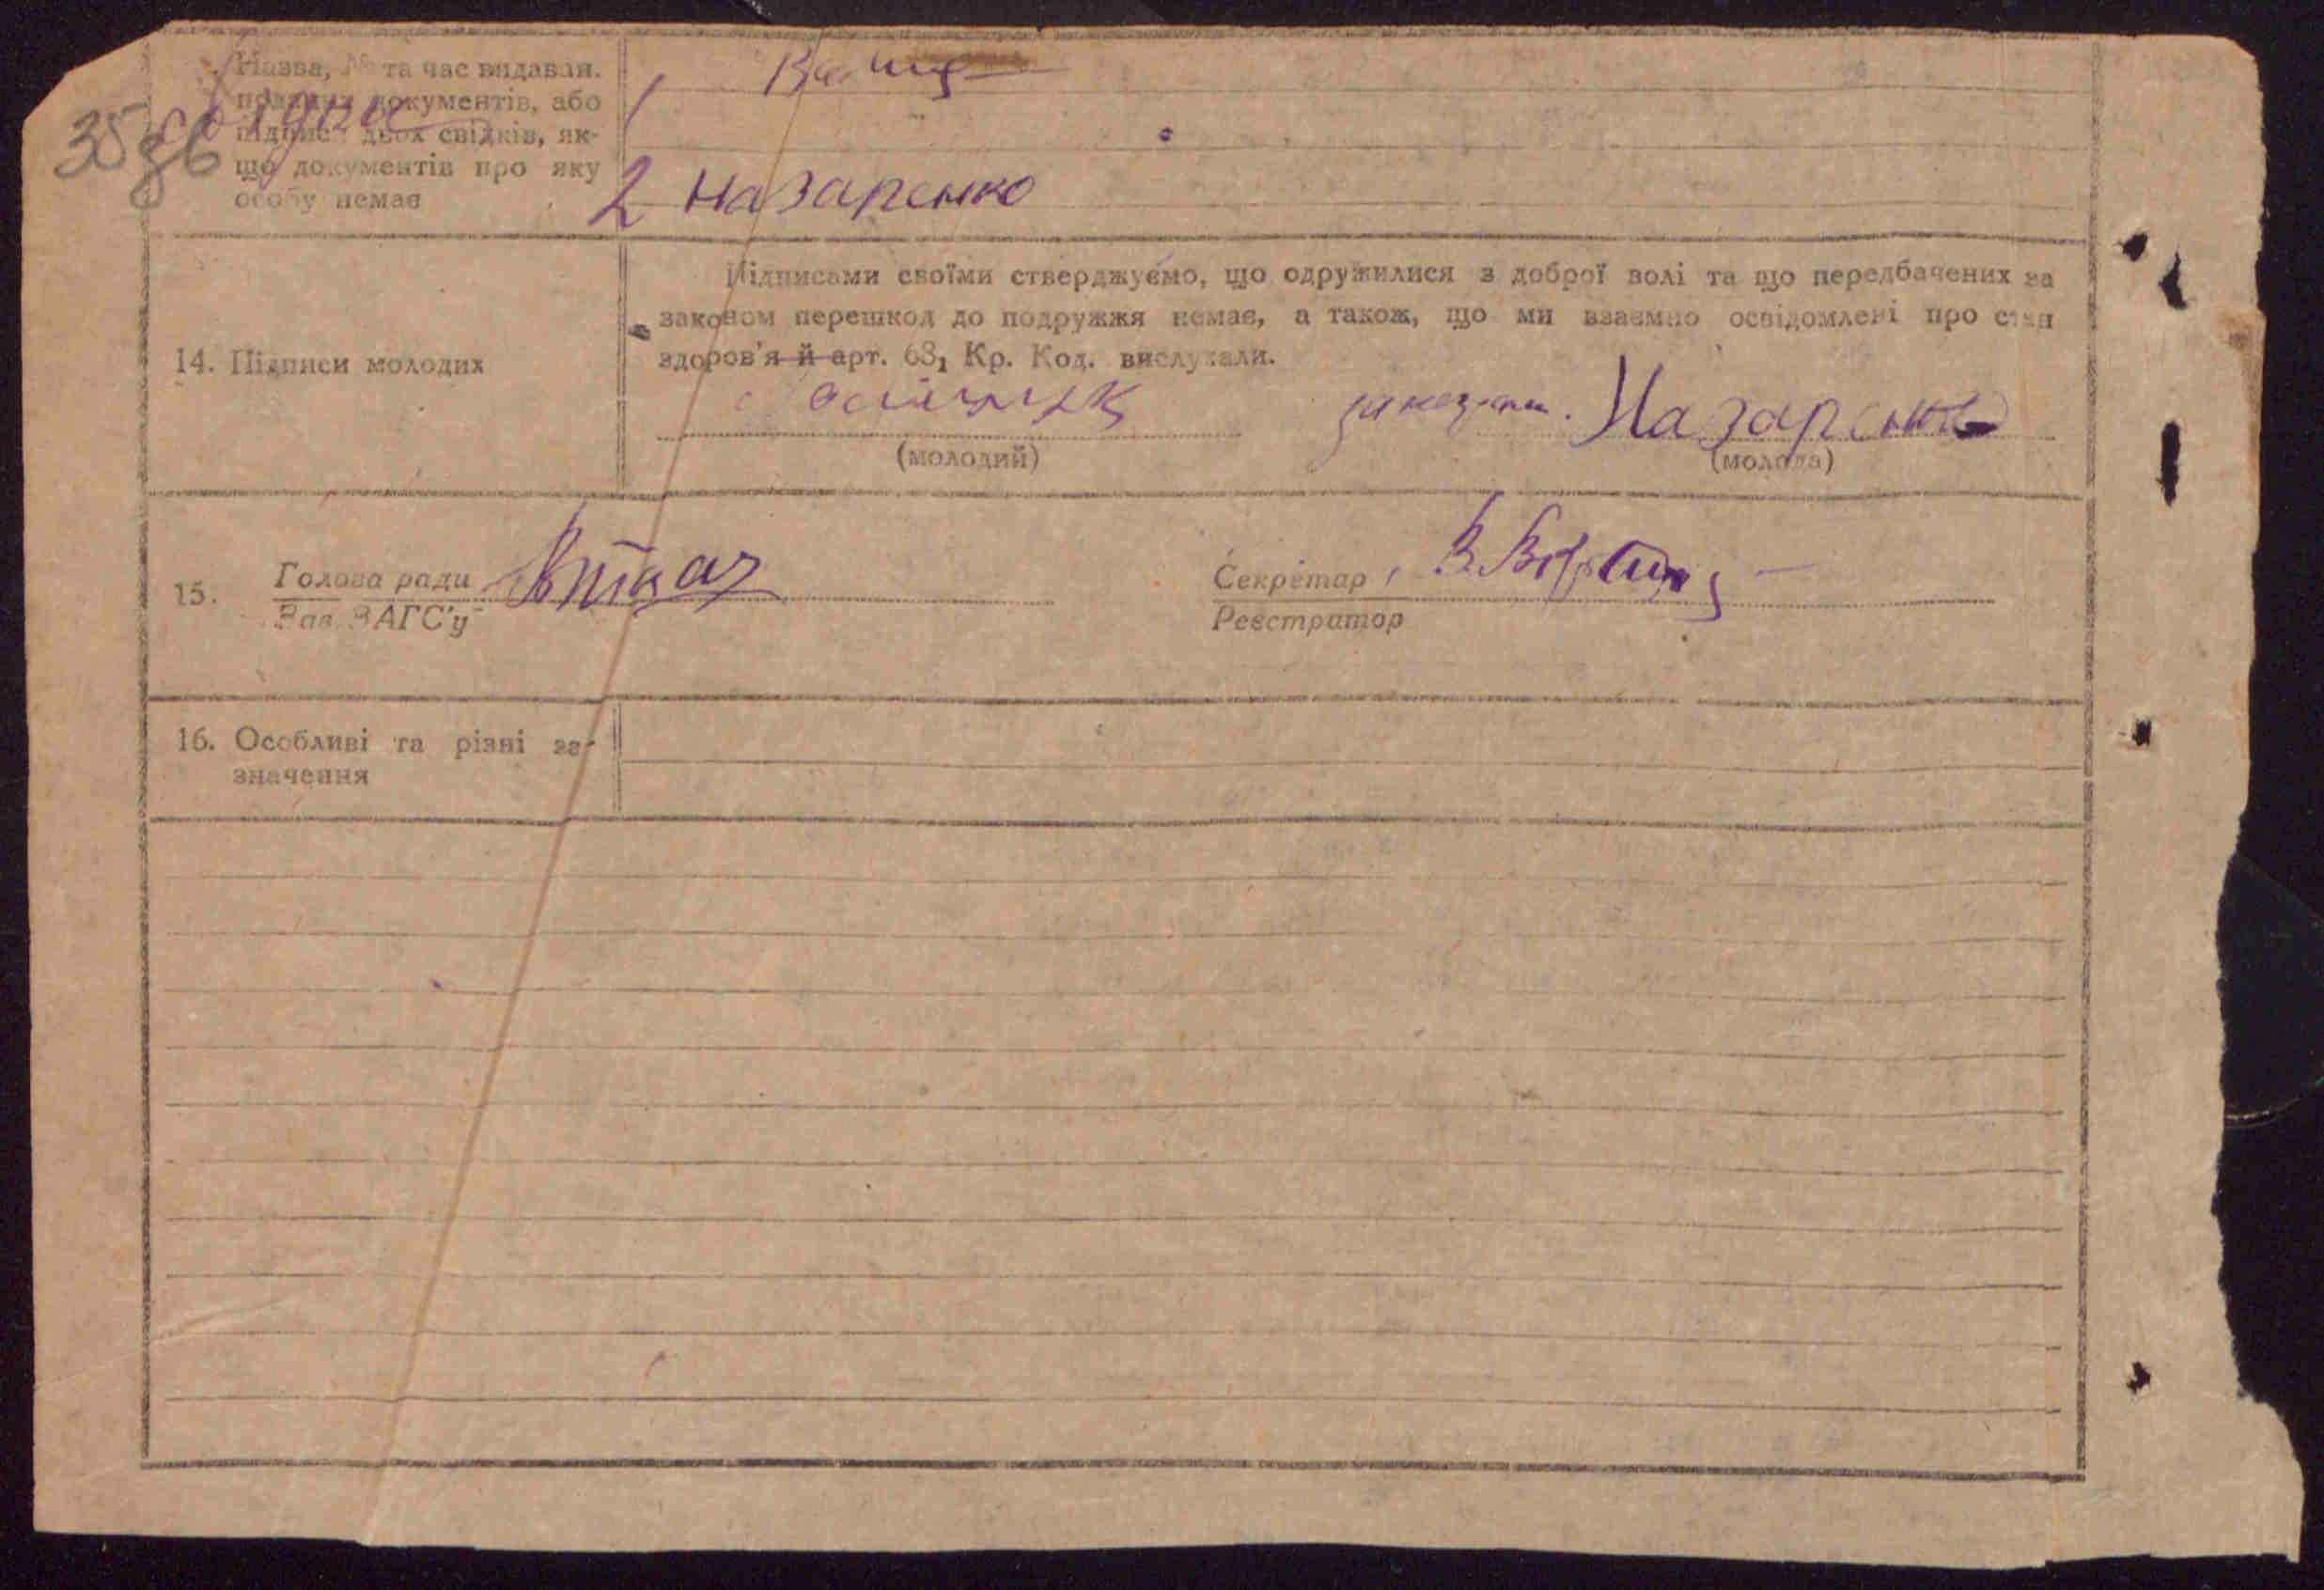 35зв
Назва, № та час видаван.
поданих документів, або
підписи двох свідків, як-
що документів про яку
особу немає
1
2 Назаренко
14. Підписи молодих
Підписами своїми стверджуємо, що одружилися з доброї волі та що передбачених за
законом перешкод до подружжя немає, а також, що ми взаємно освідомлені про стан
здоров'я й арт. 68₁ Кр. Код. вислухали.
Назаренко
(молодий) (молода)
15. Голова ради Ткач Секретар
Зав ЗАГС'у Реєстратор
16. Особливі та різні за-
значення